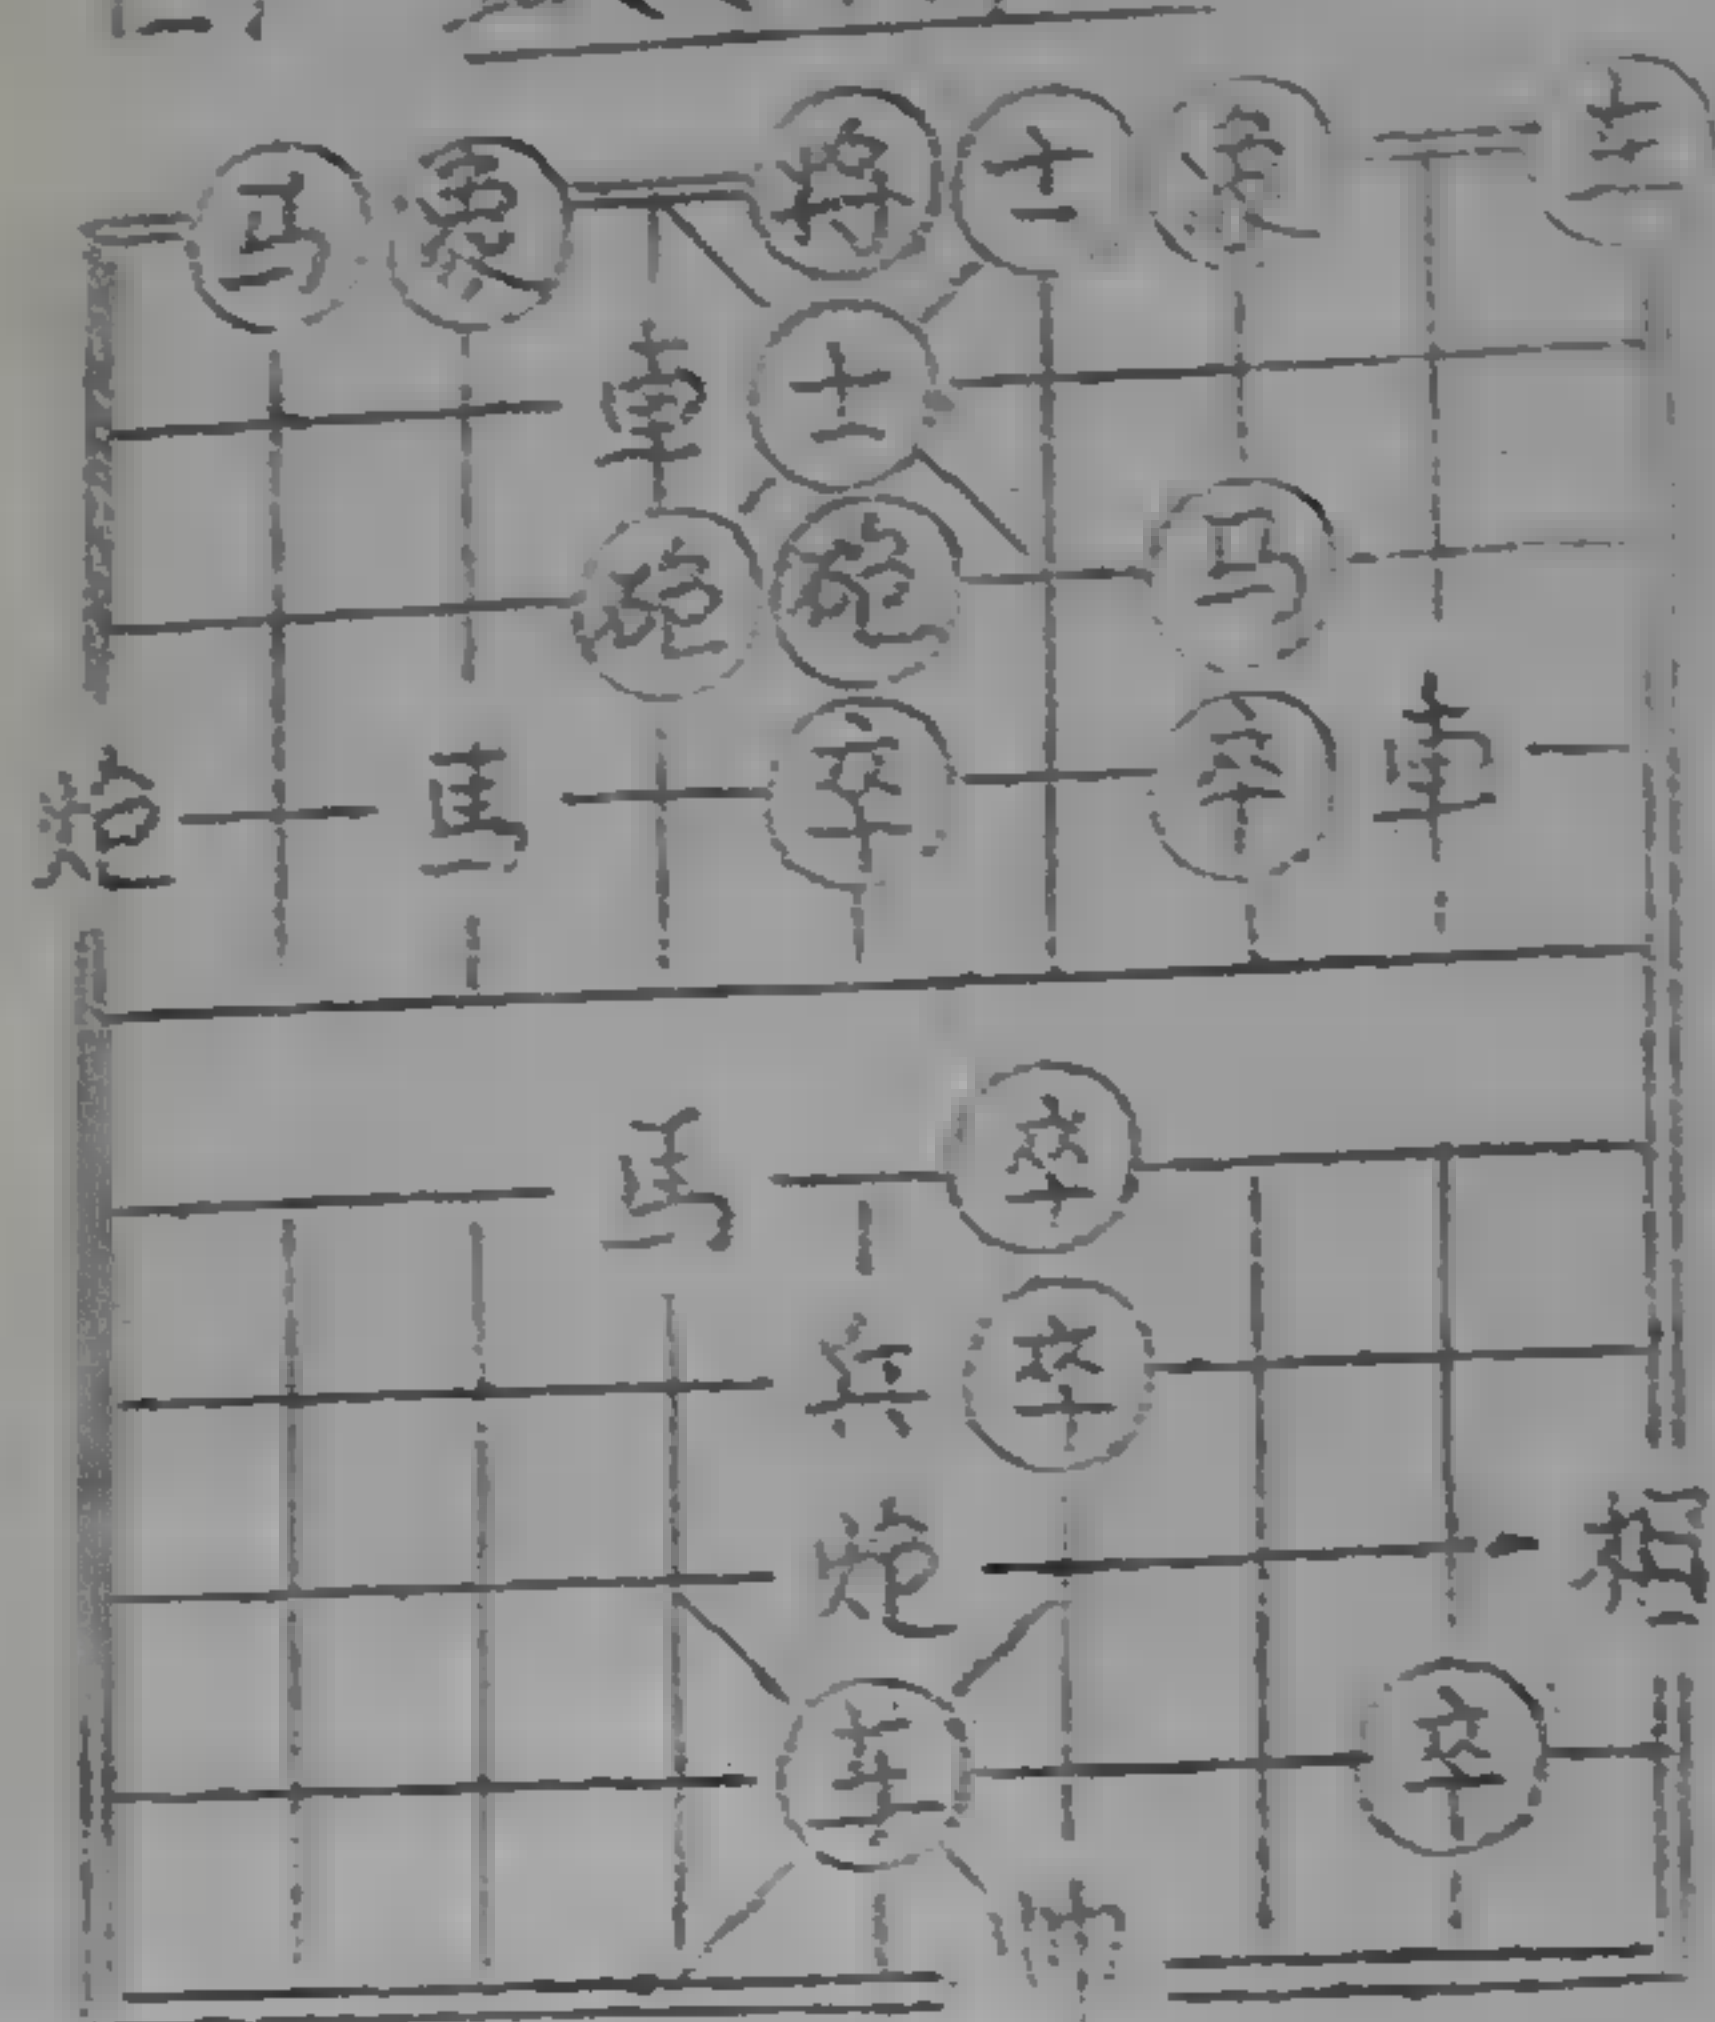 马 象 将 士 象 车
車 士
炮 炮 马
炮 馬 卒 卒 車
馬 卒
兵 卒
炮 相
车 卒
帅